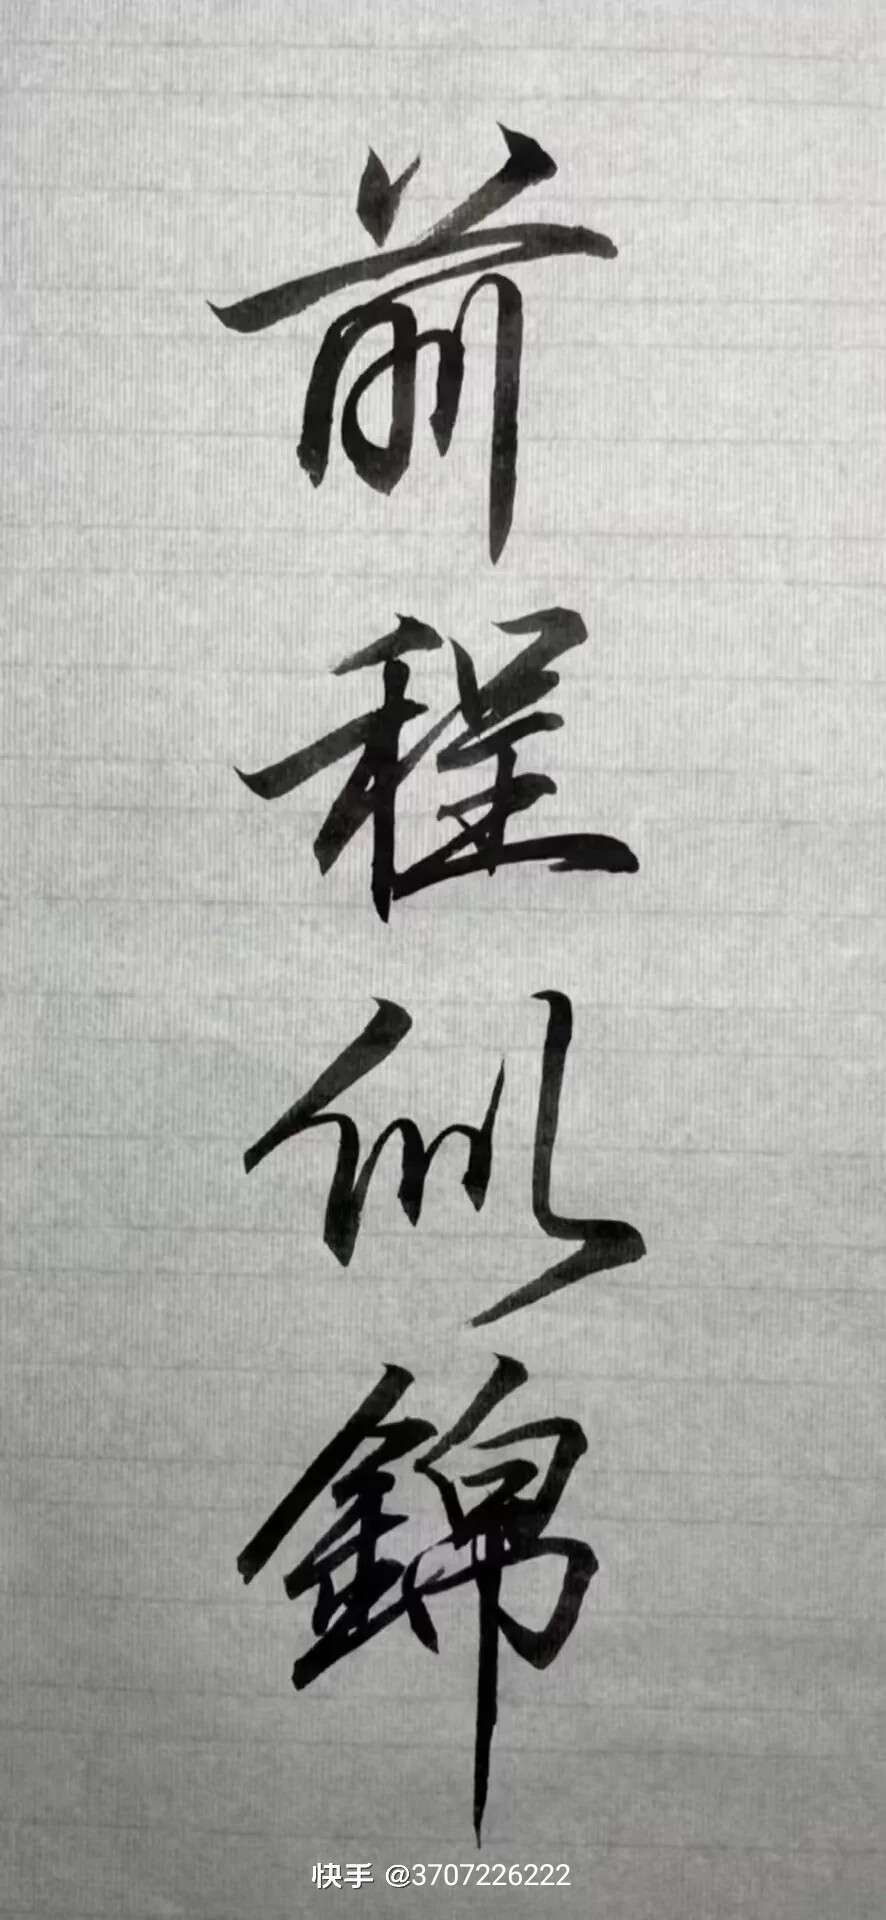 前程似錦
快手 @3707226222